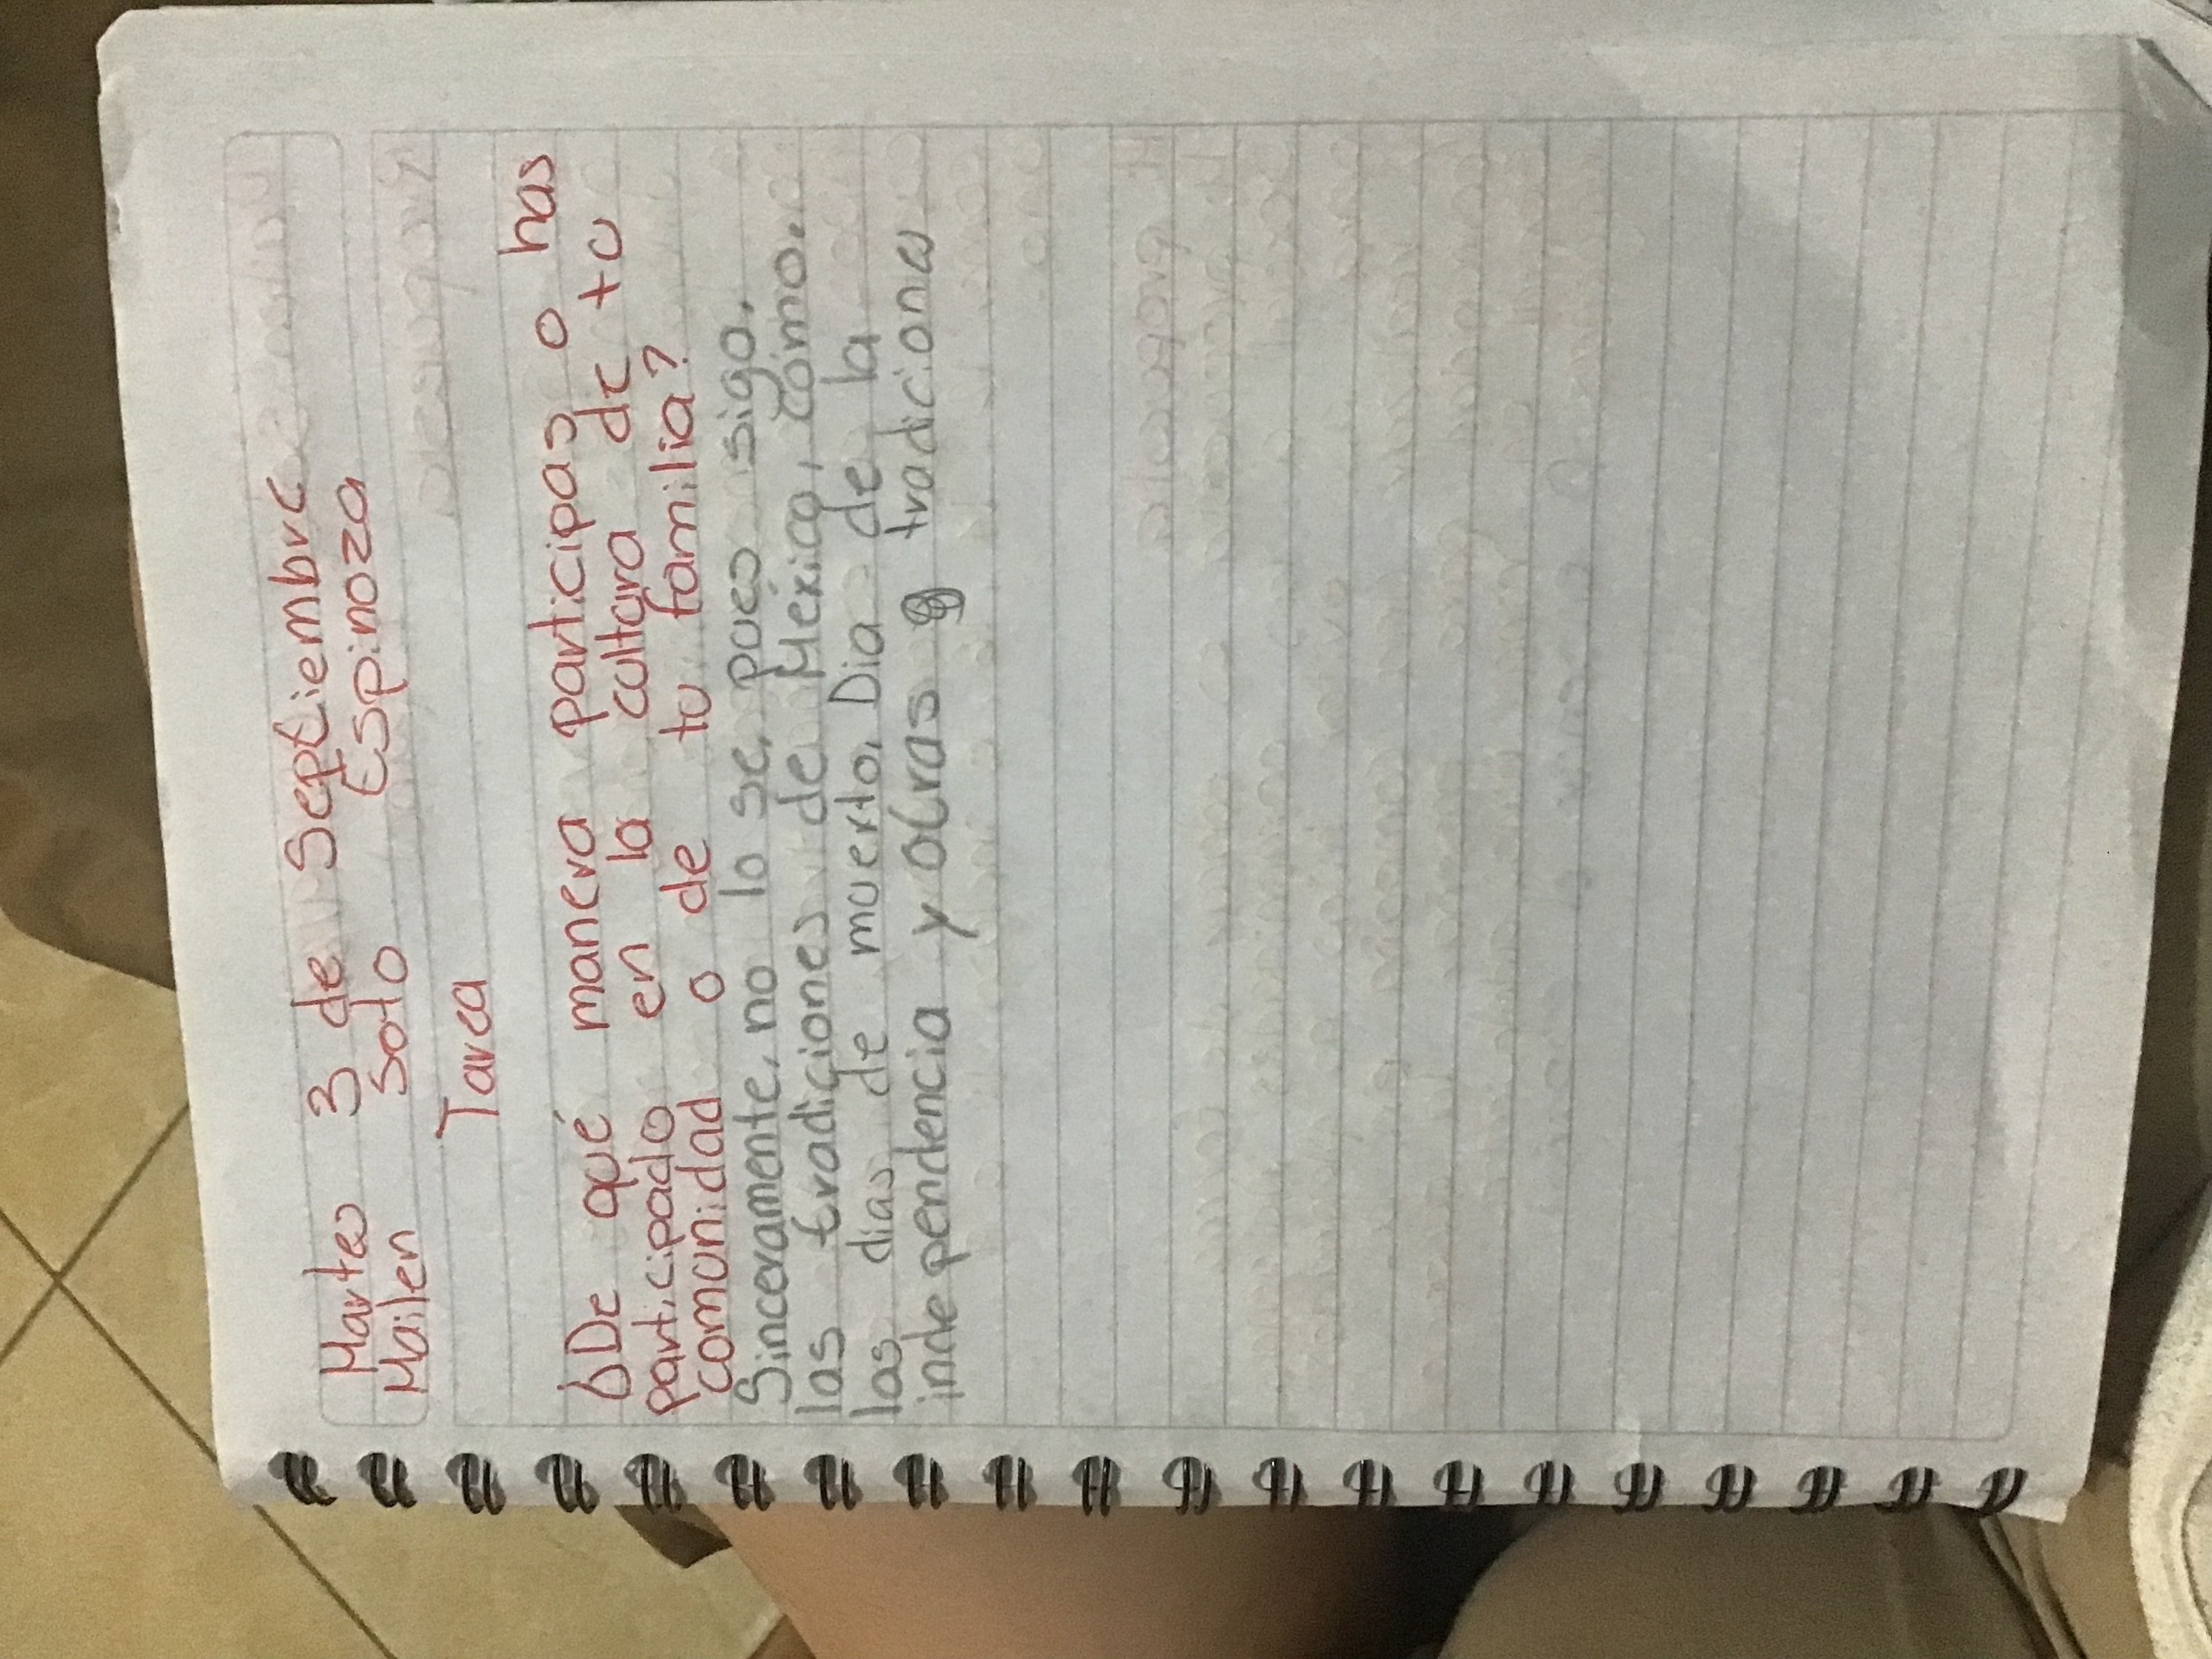 Martes 3 de Septiembre
Mailen Soto Espinoza
Tarea
¿De qué manera participas o has
participado en la cultura de tu
comunidad o de tu familia?
Sinceramente, no lo se, pues sigo.
las tradiciones de México, cómo.
las dias de muerto, Dia de la
independencia y otras tradiciones